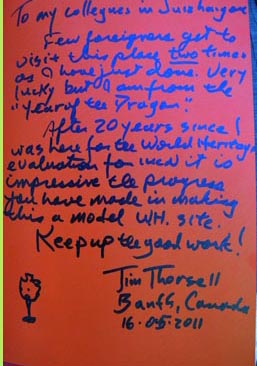 To my collegues in Juizhaigou
Few foreigners get to
visit this place two times
as I have just done. Very
lucky but I am from the
"Year of the Dragon".
After 20 years since I
was here for the World Heritage
evaluation for IUCN it is
impressive the progress
you have made in making
this a model W.H. site.
Keep up the good work!
Jim Thorsell
Banff, Canada
16.05.2011